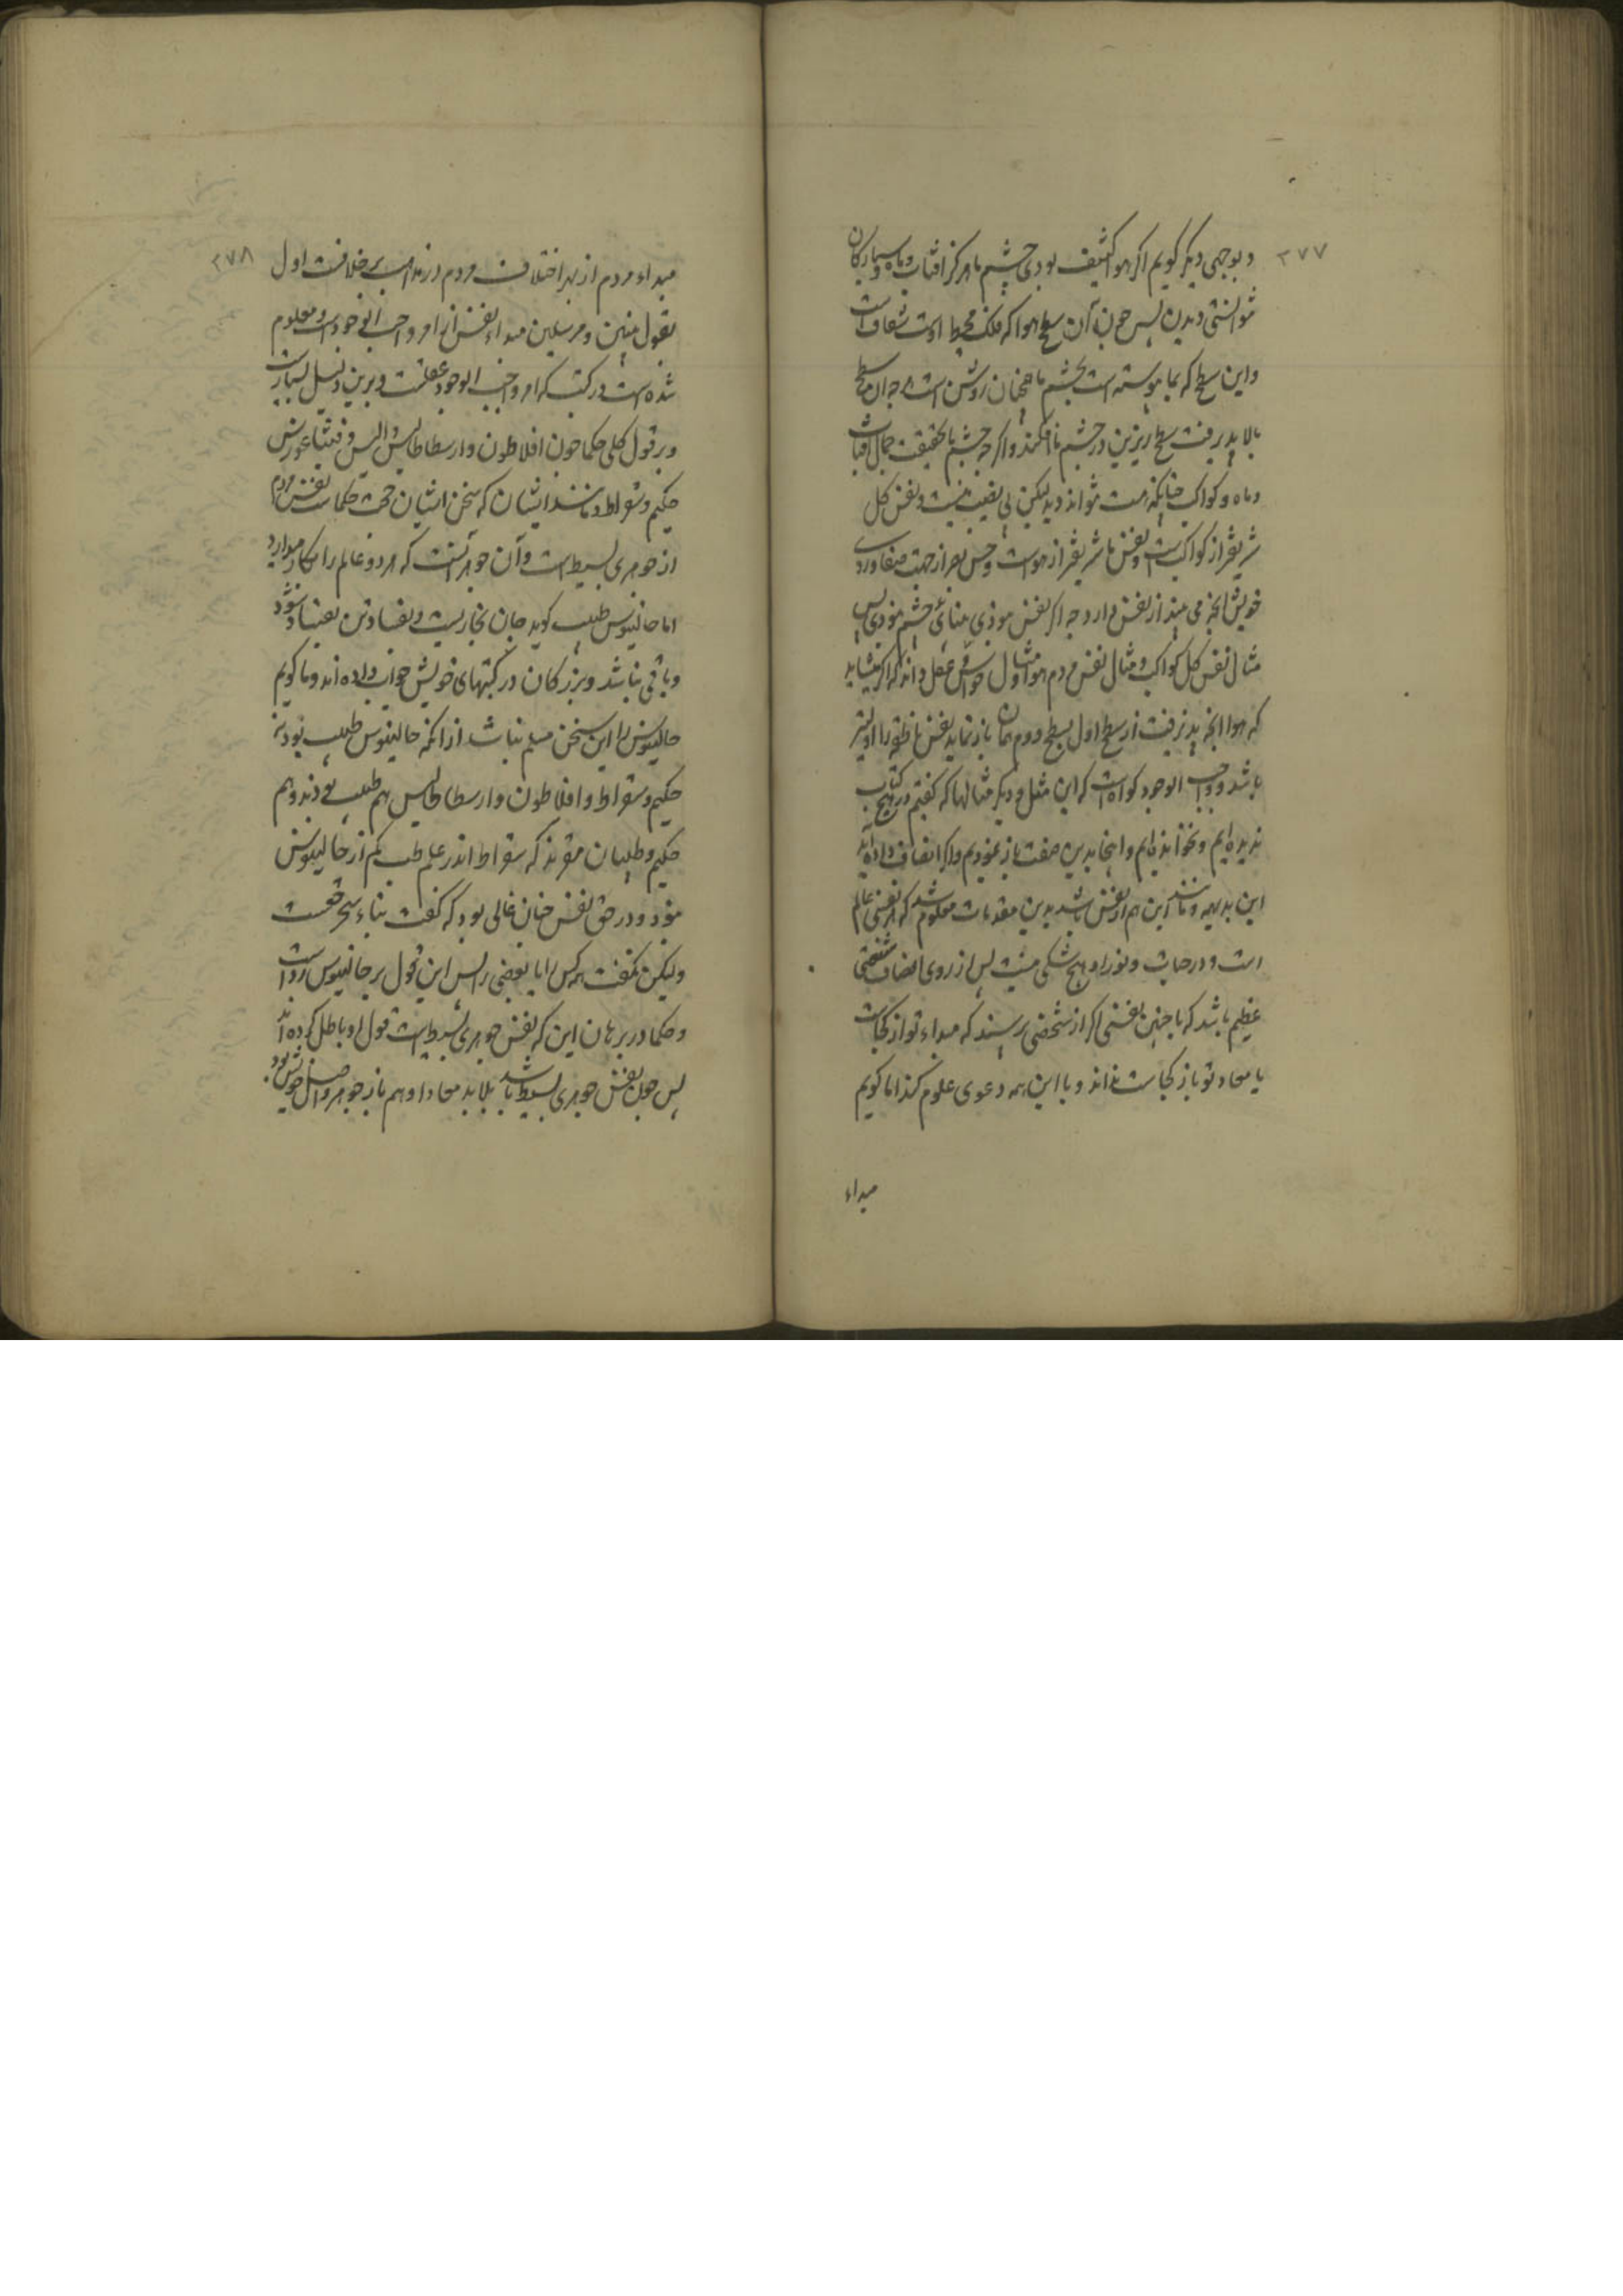 ۲۷۷
و بوجهی دیکر کویم اکر هوا کثیف بودی چشم ما هرکز افتاب و ماه و سیارکان
نتوانستی دیدن پس چون آن سطح هوا که فلک محیط اوست شفاف است
و این سطح که بما پیوسته است بچشم ما همچنان روشن است هرچه ان سطح
بالا پذیرفت سطح زیرین در چشم ما افکند و اکرچه چشم ما بحقیقت جمال افتاب
و ماه و کواکب چنانکه هست نتواند دید لیکن بی نصیب نیست و نفس کل
شریفتر از کواکب است و نفس ما شریفتر از هواست و حس بصر از جهت صفا ورد
خویش انچه می بیند از نفس دارد چه اکر نفس نبودی بینائی چشم نبودی پس
مثال نفس کل کواکب و مثال نفس مردم هوا و مثال حواس عقل داند که اکر میشاید
که هوا انچه پذیرفت از سطح اول بسطح دوم همان باز نماید نفس ناطقه را اولیتر
باشد و واجب الوجود کواه است که این مثل و دیکر مثالها که کفتم در هیچ کتاب
ندیده ایم و نخوانده ایم و اینجا بدین صفت باز نمودیم و اکر انصاف داده اید
این بدیهه و مانند این هم از نفس باشد بدین مقدمات معلوم شد که هر نفسی عالم
است و در حیات و نور او هیچ شکی نیست پس از روی انصاف نقصی
عظیم باشد که با چنین نفسی اکر از شخصی پرسند که مبداء تو از کجاست
یا معاد تو باز کجاست نداند و با این همه دعوی علوم کند اما کویم
مبداء
۲۷۸
مبداء مردم از بهر اختلاف مردم در مذاهب بر خلافست اول
بقول نبیین و مرسلین مبداء نفس از امر واجب الوجودست و معلوم
شده است در کتب که امر واجب الوجود عقلست و برین دلیل بسیارست
و بر قول کلی حکما چون افلاطون و ارسطاطالیس و ثالیس و فیثاغورس
حکیم و سقراط و مانند ایشان که سخن ایشان حجت حکماست نفس مردم
از جوهری بسیط است و آن جوهریست که هر دو عالم را بکار میدارد
اما جالینوس طبیب کوید جان بخاریست و بفساد تن بعینا و شود
و باقی نباشد و بزرکان در کتبهای خویش جواب داده اند و ما کویم
جالینوس را این سخن مسلم نباشد از انکه جالینوس طبیب بود نه
حکیم و سقراط و افلاطون و ارسطاطالیس هم طبیب بودند و هم
حکیم و طبیبان مقرند که سقراط اندر علم طب کم از جالینوس
نبود و در حق نفس چنان غالی بود که کفت بناء سخر حقست
ولیکن نکفت همه کس را یا بعضی را پس این قول بر جالینوس رواست
و حکما در برهان این که نفس جوهری بسیط است قول او باطل کرده اند
پس چون نفس جوهری بسیط باشد بلابد معاد او هم باز جوهر و اصل خویش بود